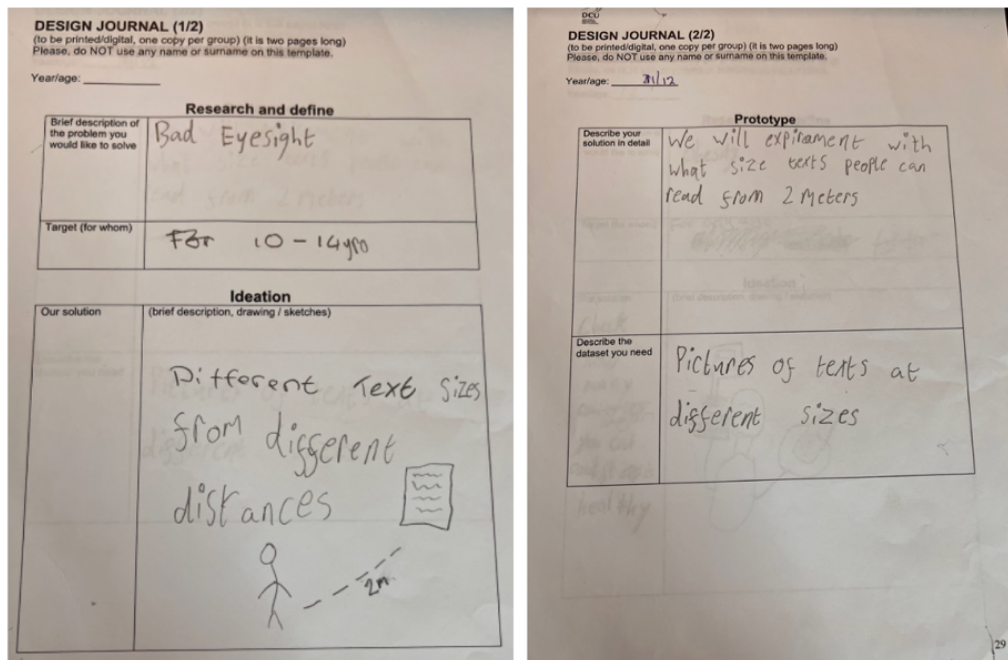 DESIGN JOURNAL (1/2)
(to be printed/digital, one copy per group) (it is two pages long)
Please, do NOT use any name or surname on this template.
Year/age:
Research and define
Brief description of
the problem you
would like to solve
Bad Eyesight
Target (for whom)
For 10-14yro
Ideation
Our solution
(brief description, drawing / sketches)
Different Text sizes
from different
distances
2m
DCU
DESIGN JOURNAL (2/2)
(to be printed/digital, one copy per group) (it is two pages long)
Please, do NOT use any name or surname on this template.
Year/age: /12
Prototype
Describe your
solution in detail
We will expirament with
what size texts people can
read from 2 Meters
Describe the
dataset you need
Pictures of texts at
different sizes
29